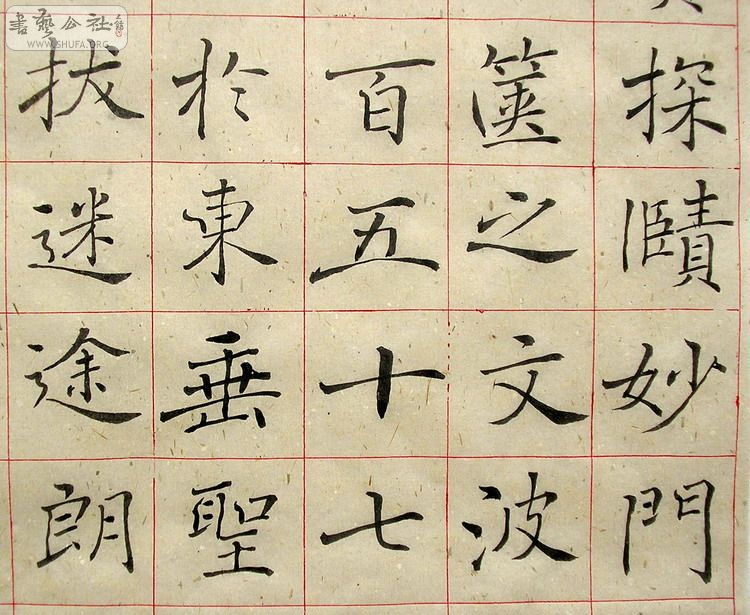 書藝公社
WWW.SHUFA.ORG
探賾妙門
篋之文波
百五十七
於東垂聖
拔迷途朗